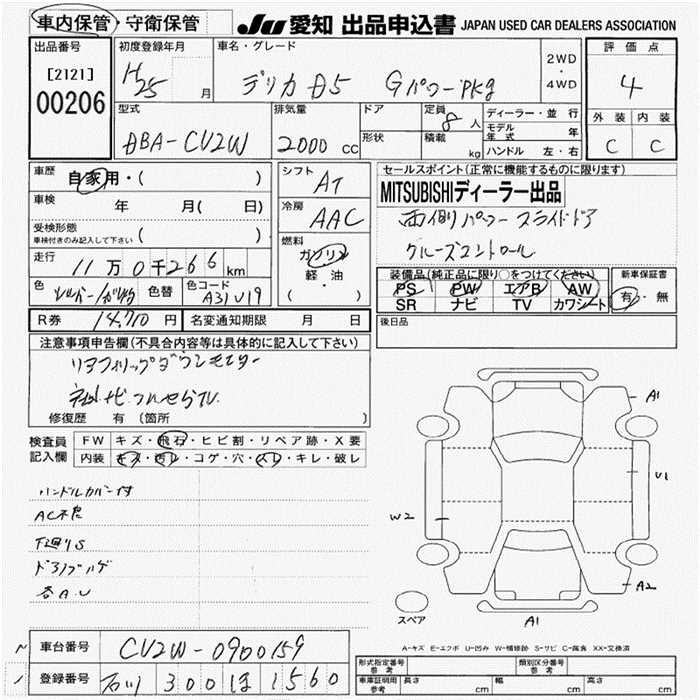 車内保管・守衛保管 JU 愛知 出品申込書 JAPAN USED CAR DEALERS ASSOCIATION
出品番号 初度登録年月 車名・グレード 評価点
[2121] H25 月 デリカD5 Gパワーpkg 2WD・4WD 4
00206
型式 排気量 ドア 定員 ディーラー・並行 外装 内装
DBA-CV2W 2000 cc 形状 8人 モデル年式 年 C C
積載 kg ハンドル 左・右
車歴 自家用・( ) シフト AT セールスポイント(正常に機能するものに限ります)
車検 年 月( 日) 冷房 AAC MITSUBISHIディーラー出品
受検形態 ( ) 両側パワースライドドア
車検付きのみ記入して下さい 燃料 クルーズコントロール
走行 11万0千266km ガソリン
軽・油
( ・ )
装備品(純正品に限り○をつけてください) 新車保証書
色 シルバー/ 色替 色コード A31U19 PS PW エアB AW 有・無
SR ナビ TV カワシート
R券 14,710円 名変通知期限 月 日 後日品
注意事項申告欄(不具合内容等は具体的に記入して下さい)
リアフリップダウンモニター
社外ナビフルセグTV
修復歴 有 (箇所 )
検査員 FW キズ・飛石・ヒビ割・リペア跡・X要
記入欄 内装 キズ・汚レ・コゲ・穴・スレ・キレ・破レ
ハンドルカバー付
AC不良
下廻りS
各A.U
A1
U1
W2
A2
スペア A1
A-キズ E-エクボ U-凹み W-補修跡 S-サビ C-腐食 XX-交換済
車台番号 CV2W-0900159
登録番号 石川 300 ほ 1560
形式指定番号 参考 類別区分番号 参考
車庫証明用 参考 長さ cm 幅 cm 高さ cm